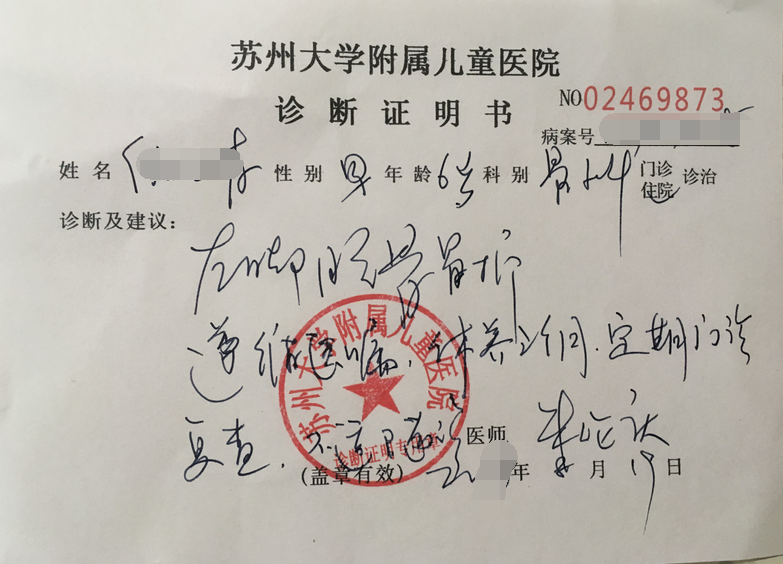 苏州大学附属儿童医院
诊断证明书
NO02469873
病案号
姓名 性别 男 年龄 6岁 科别 骨科 门诊 住院 诊治
诊断及建议：
左
遵 医嘱， 休养 ，定期门诊
复查，不适随诊 医师
(盖章有效) 年 月 19日
苏州大学附属儿童医院
诊断证明专用章